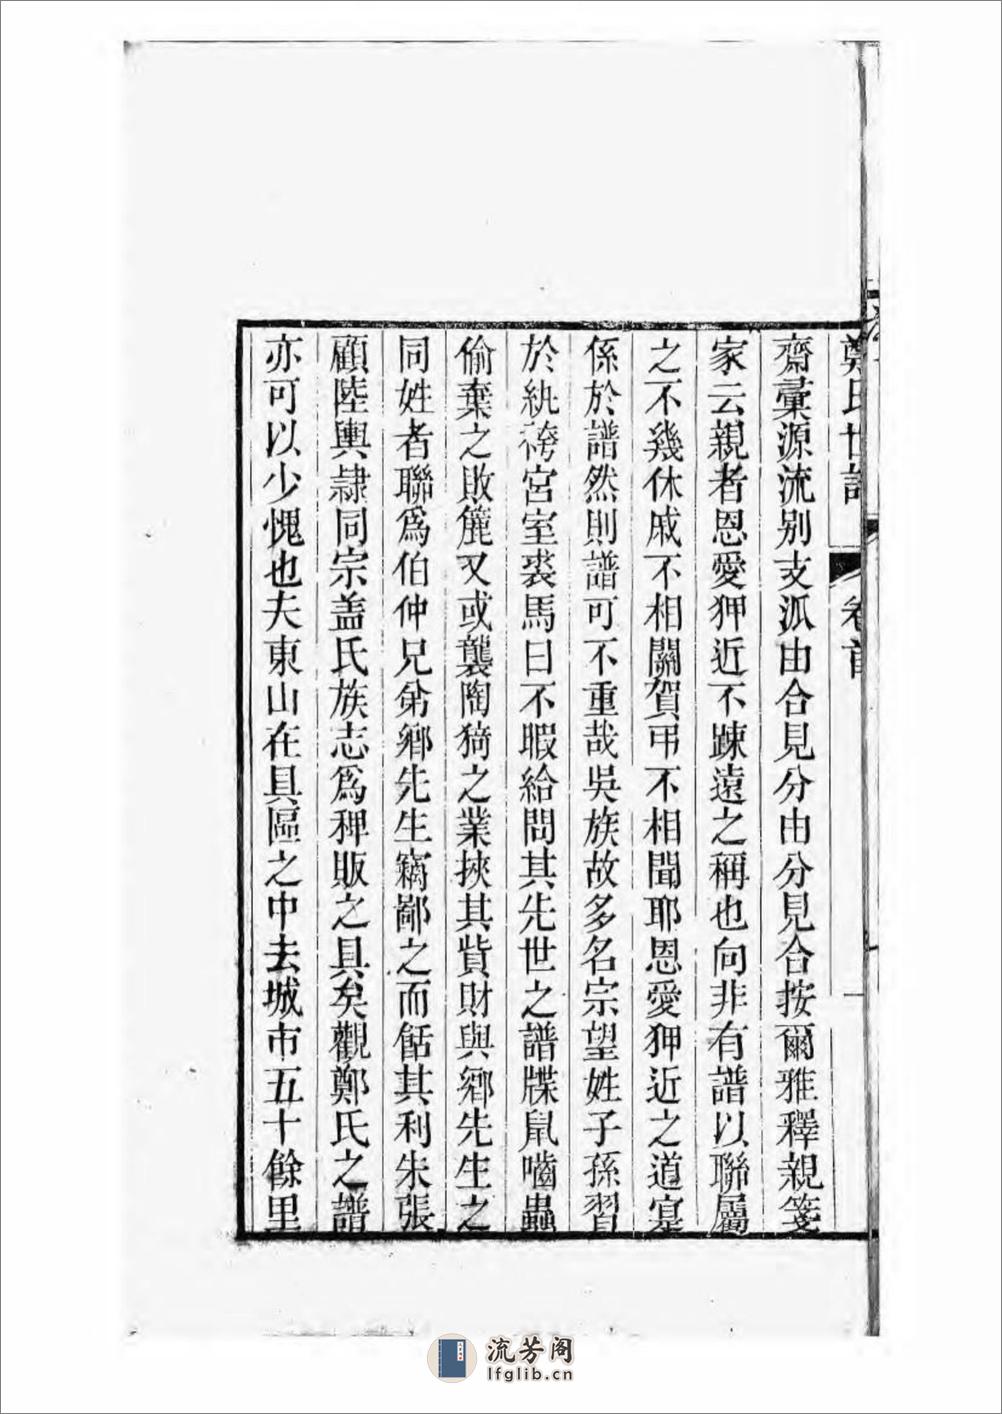 鄭氏世譜 卷首 一
齋彚源流別支派由合見分由分見合按爾雅釋親箋
家云親者恩愛狎近不踈遠之稱也向非有譜以聯屬
之不幾休戚不相關賀弔不相聞耶恩愛狎近之道寔
係於譜然則譜可不重哉吳族故多名宗望姓子孫習
於紈袴宮室裘馬日不暇給問其先世之譜牒鼠嚙蟲
偷棄之敗簏又或襲陶猗之業挾其貲財與鄉先生之
同姓者聯爲伯仲兄弟鄉先生竊鄙之而餂其利朱張
顧陸輿隷同宗盖氏族志爲稗販之具矣觀鄭氏之譜
亦可以少愧也夫東山在具區之中去城市五十餘里
流芳阁
lfglib.cn